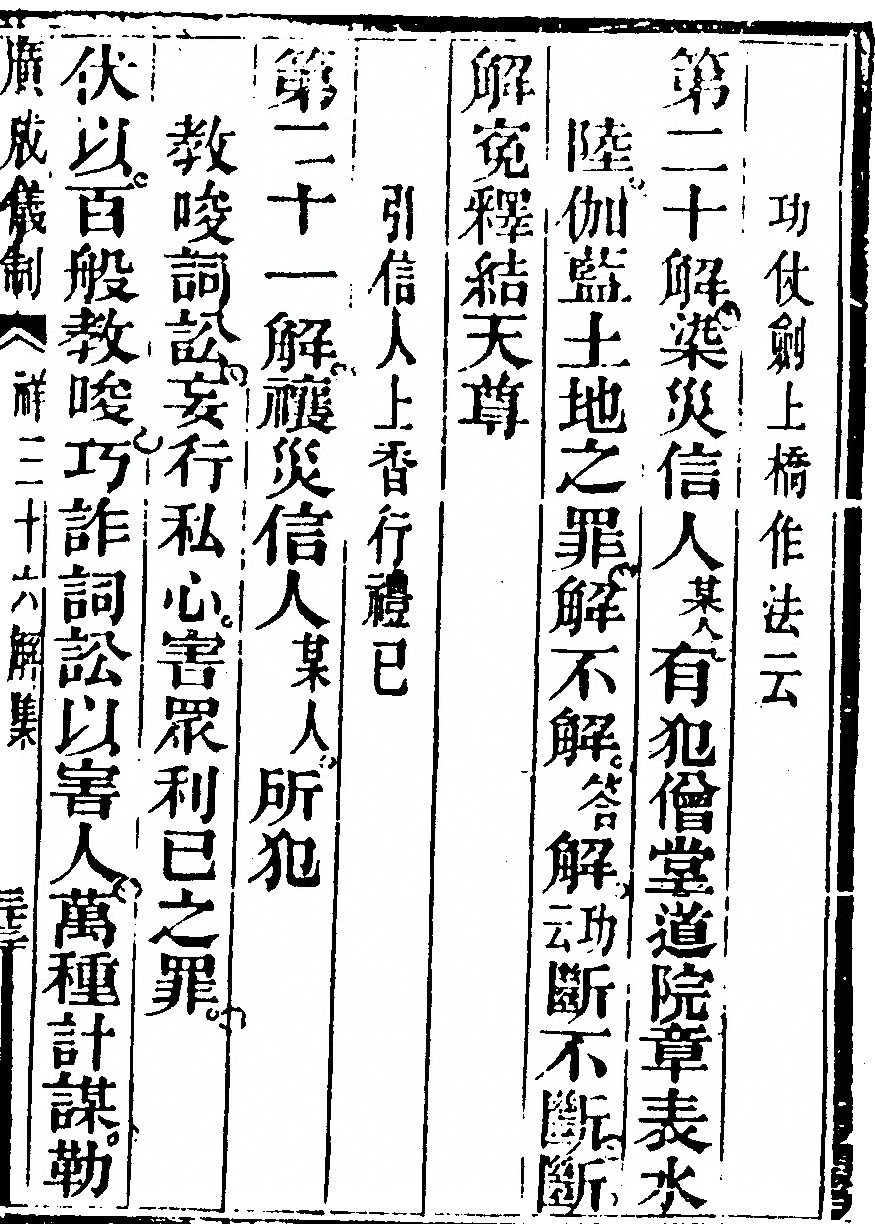 功仗劍上橋作法云
第二十解染災信人某人有犯僧堂道院章表水
陸伽藍土地之罪解不解答解功云斷不斷斷
解寃釋結天尊
引信人上香行禮已
第二十一解禳災信人某人所犯
教唆詞訟妄行私心害眾利已之罪
伏以百般教唆巧詐詞訟以害人萬種計謀勒
廣成儀制 祥三十六解集